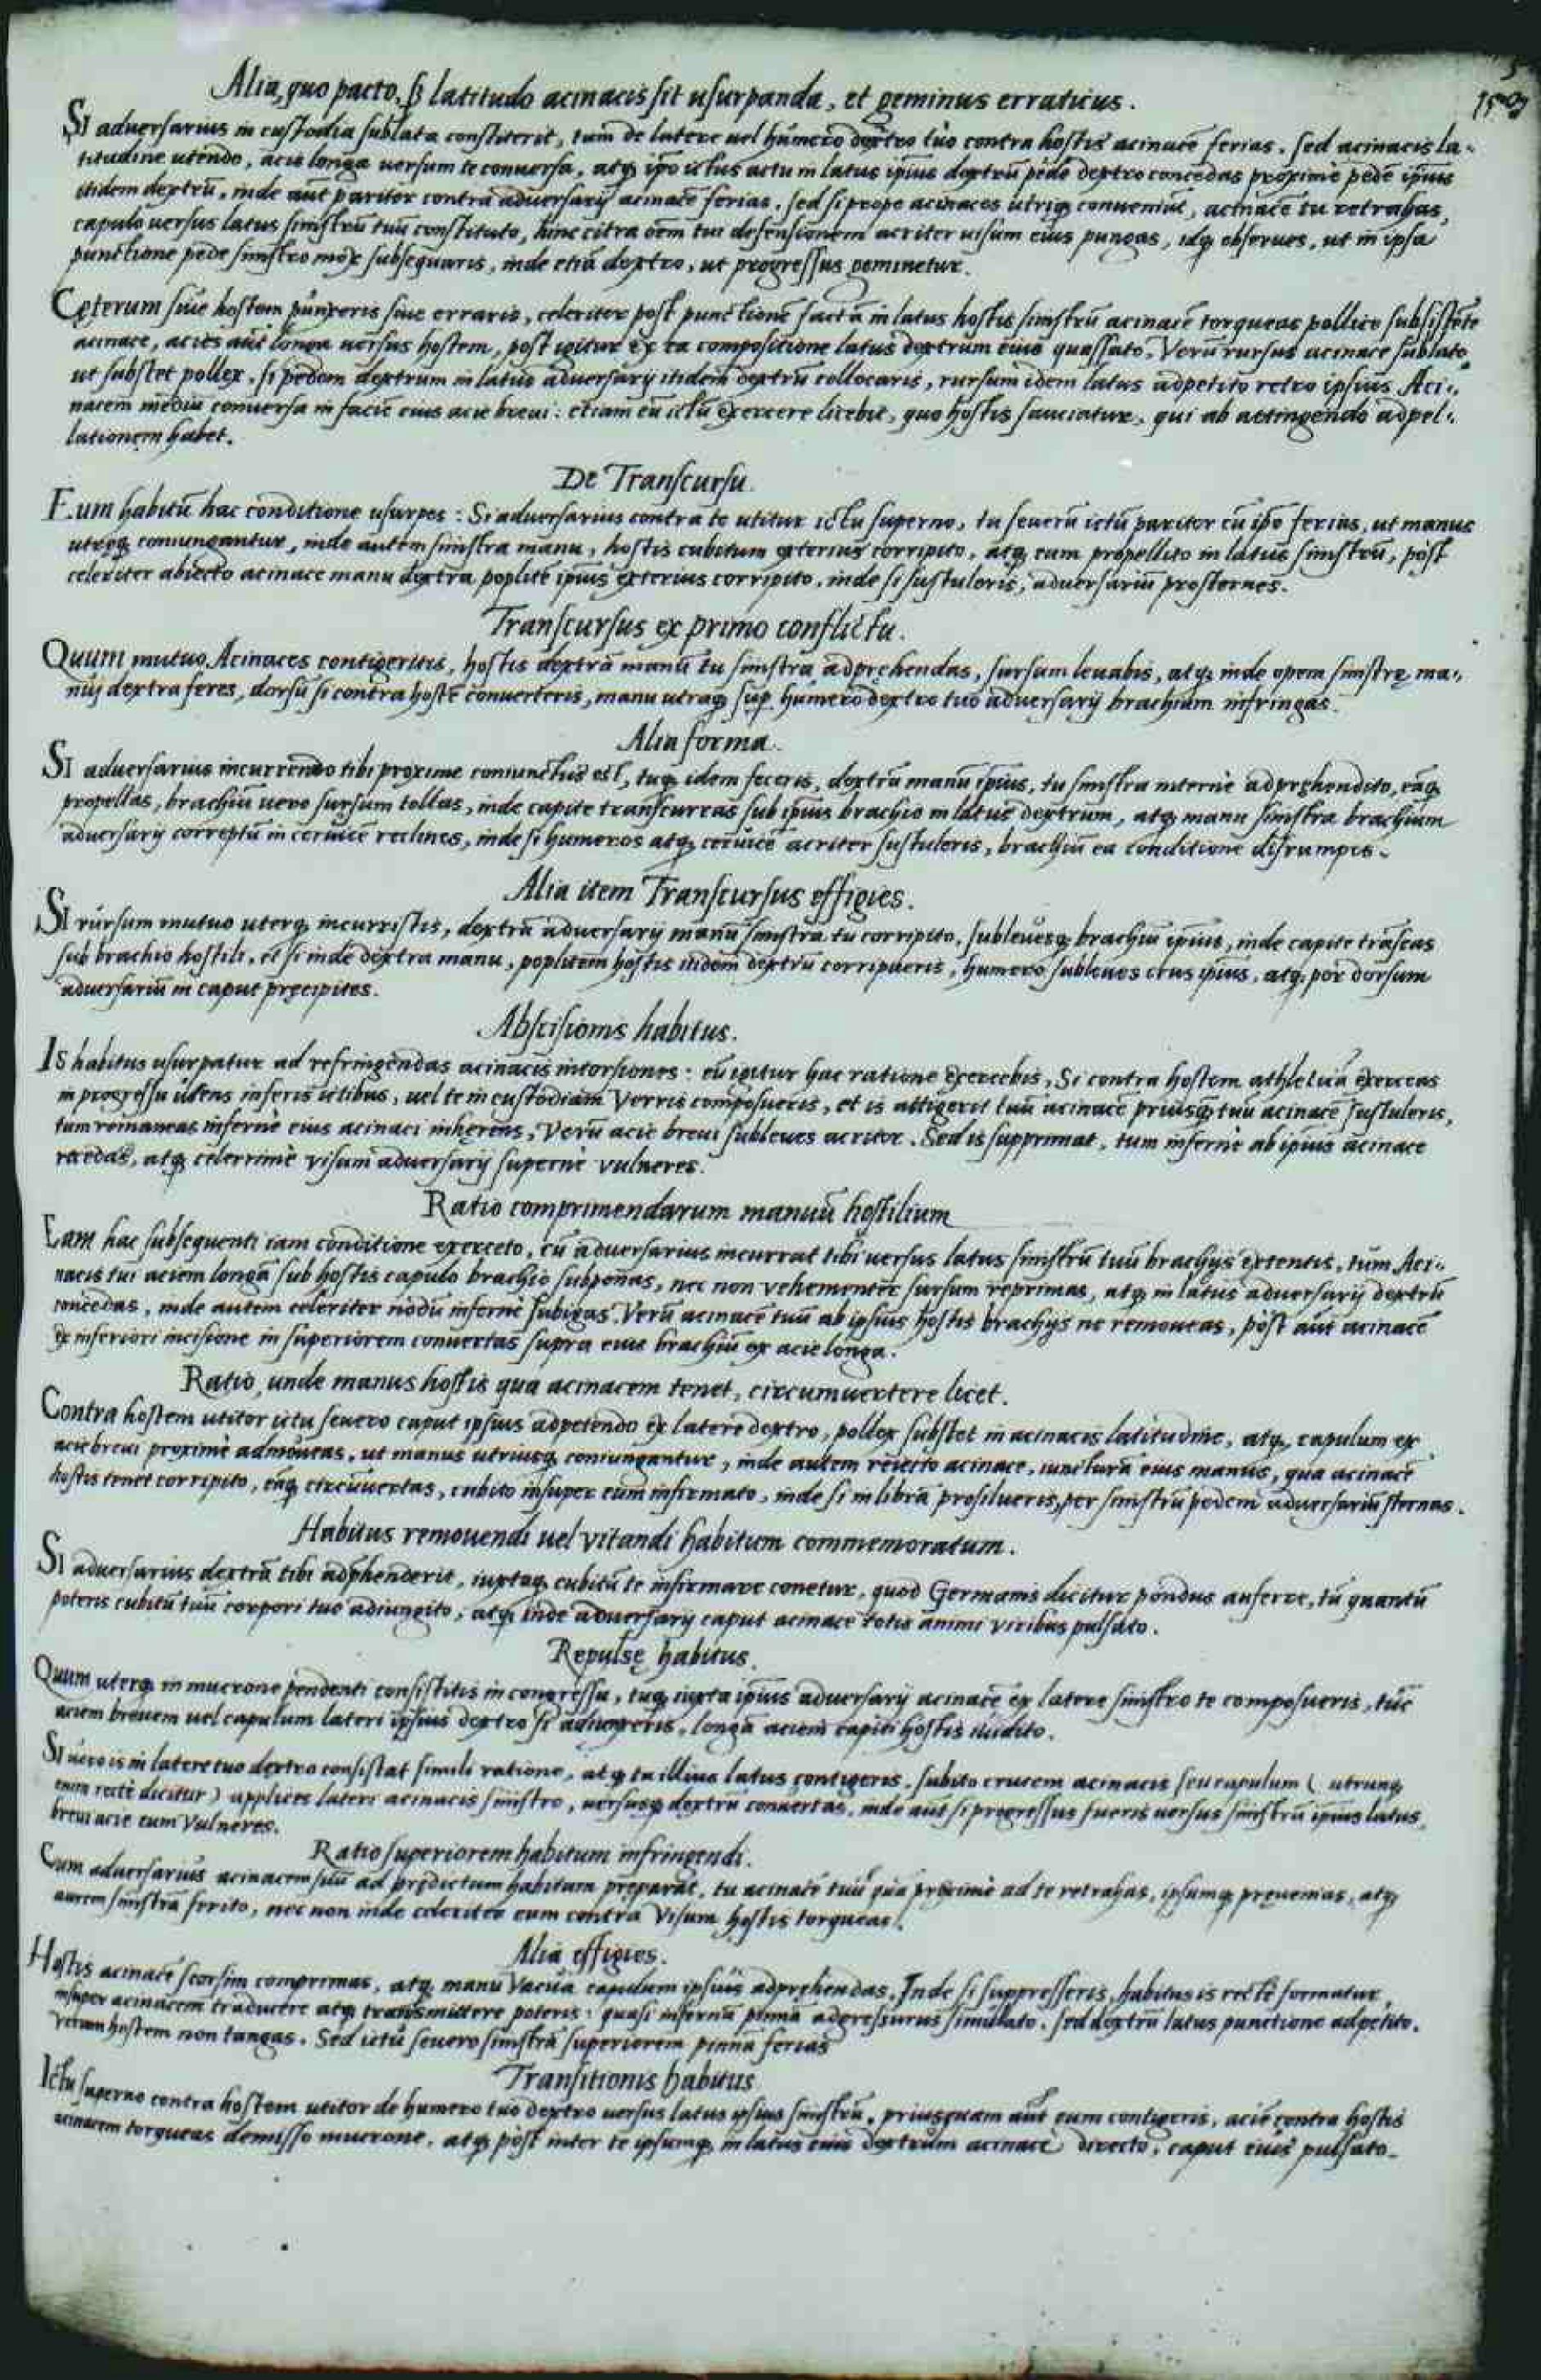 Alia, quo pacto, ß latitudo acinacis sit usurpanda, et geminus erraticus.
SI adversarius in custodia sublata constiterit, tum de latere uel humero dextro tuo contra hostis acinacē ferias. sed acinacis la-
titudine utendo, acie longa uersum te conuersa, atq; ipo ictus actu in latus ipius dextrū pede dextro concedas proxime pedē ipius
itidem dextrū, inde aut pariter contra aduersarij acinacē ferias. sed si prope acinaces utriq; conueniūt, acinacē tu retrahas,
capulo versus latus sinistrū tuū constituto, hinc citra oēm tui defensionem acriter uisum eius pungas, idq; obserues, ut in ipsa
punctione pede sinistro mox subsequaris, inde etiā dextro, ut progressus geminetur.
Cęterum siue hostem punxeris siue erraris, celeriter post punctionē factā in latus hostis sinistrū acinacē torqueas pollice subsistēte
acinace, acies aut longa uersus hostem, post igitur ex ea compositione latus dextrum eius quassato. Verū rursus acinace sublato,
ut substet pollex, si pedem dextrum in latus aduersarij itidem dextrū collocaris, rursum idem latus adpetito retro ipsius. Aci-
nacem mediū conuersa in faciē eius acie breui: etiam eū ictū exercere licebit, quo hostis sauciatur, qui ab attingendo adpel-
lationem habet.
De Transcursu.
Eum habitū hac conditione usurpes: Si aduersarius contra te utitur ictu superno, tu seuerū ictū pariter cū ipo ferias, ut manus
utręq; coniungantur, inde autem sinistra manu, hostis cubitum exterius corripito, atq; eum propellito in latus sinistrū, post
celeriter abiecto acinace manu dextra poplitē ipius exterius corripito, inde si sustuleris, aduersariū prosternes.
Transcursus ex primo conflictu.
Quum mutuo Acinaces contigeritis, hostis dextrā manū tu sinistra adprehendas, sursum leuabis, atq; inde opem sinistrę ma-
nuj dextra feres, dorsū si contra hostē conuerteris, manu utraq; sup humero dextro tuo aduersarij brachium infringas.
Alia forma.
SI aduersarius incurrendo tibi proxime coniunctus est, tuq; idem feceris, dextrā manū ipius, tu sinistra internè adprehendito, eāq;
propellas, brachiū uero sursum tollas, inde capite transcurras sub ipius brachio in latus dextrum, atq; manu sinistra brachium
aduersarij correptū in ceruicē reclines, inde si humeros atq; ceruicē acriter sustuleris, brachiū ea conditione disrumpes.
Alia item Transcursus effigies.
SI rursum mutuo uterq; incurristis, dextrā aduersarij manū sinistra tu corripito, subleuesq; brachiū ipius, inde capite trāseas
sub brachio hostili, et si inde dextra manu, poplitem hostis itidem dextrū corripueris, humero subleues crus ipius, atq; per dorsum
aduersariū in caput pręcipites.
Abscisionis habitus.
Is habitus usurpatur ad refringendas acinacis intorsiones: eū igitur hac ratione exercebis, Si contra hostem athleticā exerceas
in progressu utens inferis ictibus, uel te in custodiam Verris composueris, et is attigerit tuū acinacē priusq; tuū acinacē sustuleris,
tum remaneas infernè eius acinaci inherens, Verū acie breui subleues acriter. Sed is supprimat, tum infernè ab ipius acinace
recedas, atq; celerrimè visum aduersarij supernè vulneres.
Ratio comprimendarum manuū hostilium
Eam hac subsequenti iam conditione exerceto, cū aduersarius incurrat tibi uersus latus sinistrū tuū brachijs extentis, tum Aci-
nacis tui aciem longā sub hostis capulo brachio subponas, nec non vehementer sursum reprimas, atq; in latus aduersarij dextrū
concedas, inde autem celeriter nodū infernè subigas. Verū acinacē tuū ab ipsius hostis brachijs ne remoueas, post aut acinacē
ex inferiori incisione in superiorem conuertas supra eius brachiū ex acie longa.
Ratio, unde manus hostis qua acinacem tenet, circumuertere licet.
Contra hostem utitor ictu seuero caput ipsius adpetendo ex latere dextro, pollex substet in acinacis latitudine, atq; capulum ex
acie breui proximè admoueas, ut manus utriusq; coniungantur, inde autem reiecto acinace, iuncturā eius manus, qua acinacē
hostis tenet corripito, eāq; circūuertas, cubito insuper eum infirmato, inde si in librā prosilueris, per sinistrū pedem aduersariū sternas.
Habitus remouendi uel vitandi habitum commemoratum.
SI aduersarius dextrā tibi adphenderit, iuxtaq; cubitū te infirmare conetur, quod Germanis dicitur pondus auferre, tū quantū
poteris cubitū tuū corpori tuo adiungito, atq; inde aduersarij caput acinace totis animi viribus pulsato.
Repulsę habitus.
Quum uterq; in mucrone pendenti consistitis in congressu, tuq; iuxta ipius aduersarij acinacē ex latere sinistro te composueris, tūc
aciem breuem uel capulum lateri ipsius dextro si adiunxeris, longā aciem capiti hostis illidito.
SI uero is in latere tuo dextro consistat simili ratione, atq; tu illius latus contigeris, subito crucem acinacis seu capulum ( utrunq;
enim rectè dicitur ) applices lateri acinacis sinistro, uersusq; dextrū conuertas, inde aut si progressus fueris uersus sinistrū ipius latus,
breui acie eum vulneres.
Ratio superiorem habitum infringendi.
Cum aduersarius acinacem suū ad prędictum habitum pręparat, tu acinacē tuū proximè ad te retrahas, ipsumq; pręuenias, atq;
aurem sinistrā ferito, nec non inde celeriter eum contra Visum hostis torqueas.
Alia effigies.
Hostis acinacē scorsim comprimas, atq; manu Vacua capulum ipsius adprehendas. Inde si suppresseris, habitus is rectè formatur,
insuper acinacem traducere atq; transmittere poteris: quasi infernā pinnā adgressurus simulato, sed dextrū latus punctione adpetito.
Verum hostem non tangas. Sed ictū seuero sinistrā superiorem pinnā ferias
Transitionis habitus
Ictu superno contra hostem utitor de humero tuo dextro uersus latus ipsius sinistrū, priusquam aut eum contigeris, aciē contra hostis
acinacem torqueas demisso mucrone, atq; post inter te ipsumq; in latus eius dextrum acinace directo, caput eius pulsato.